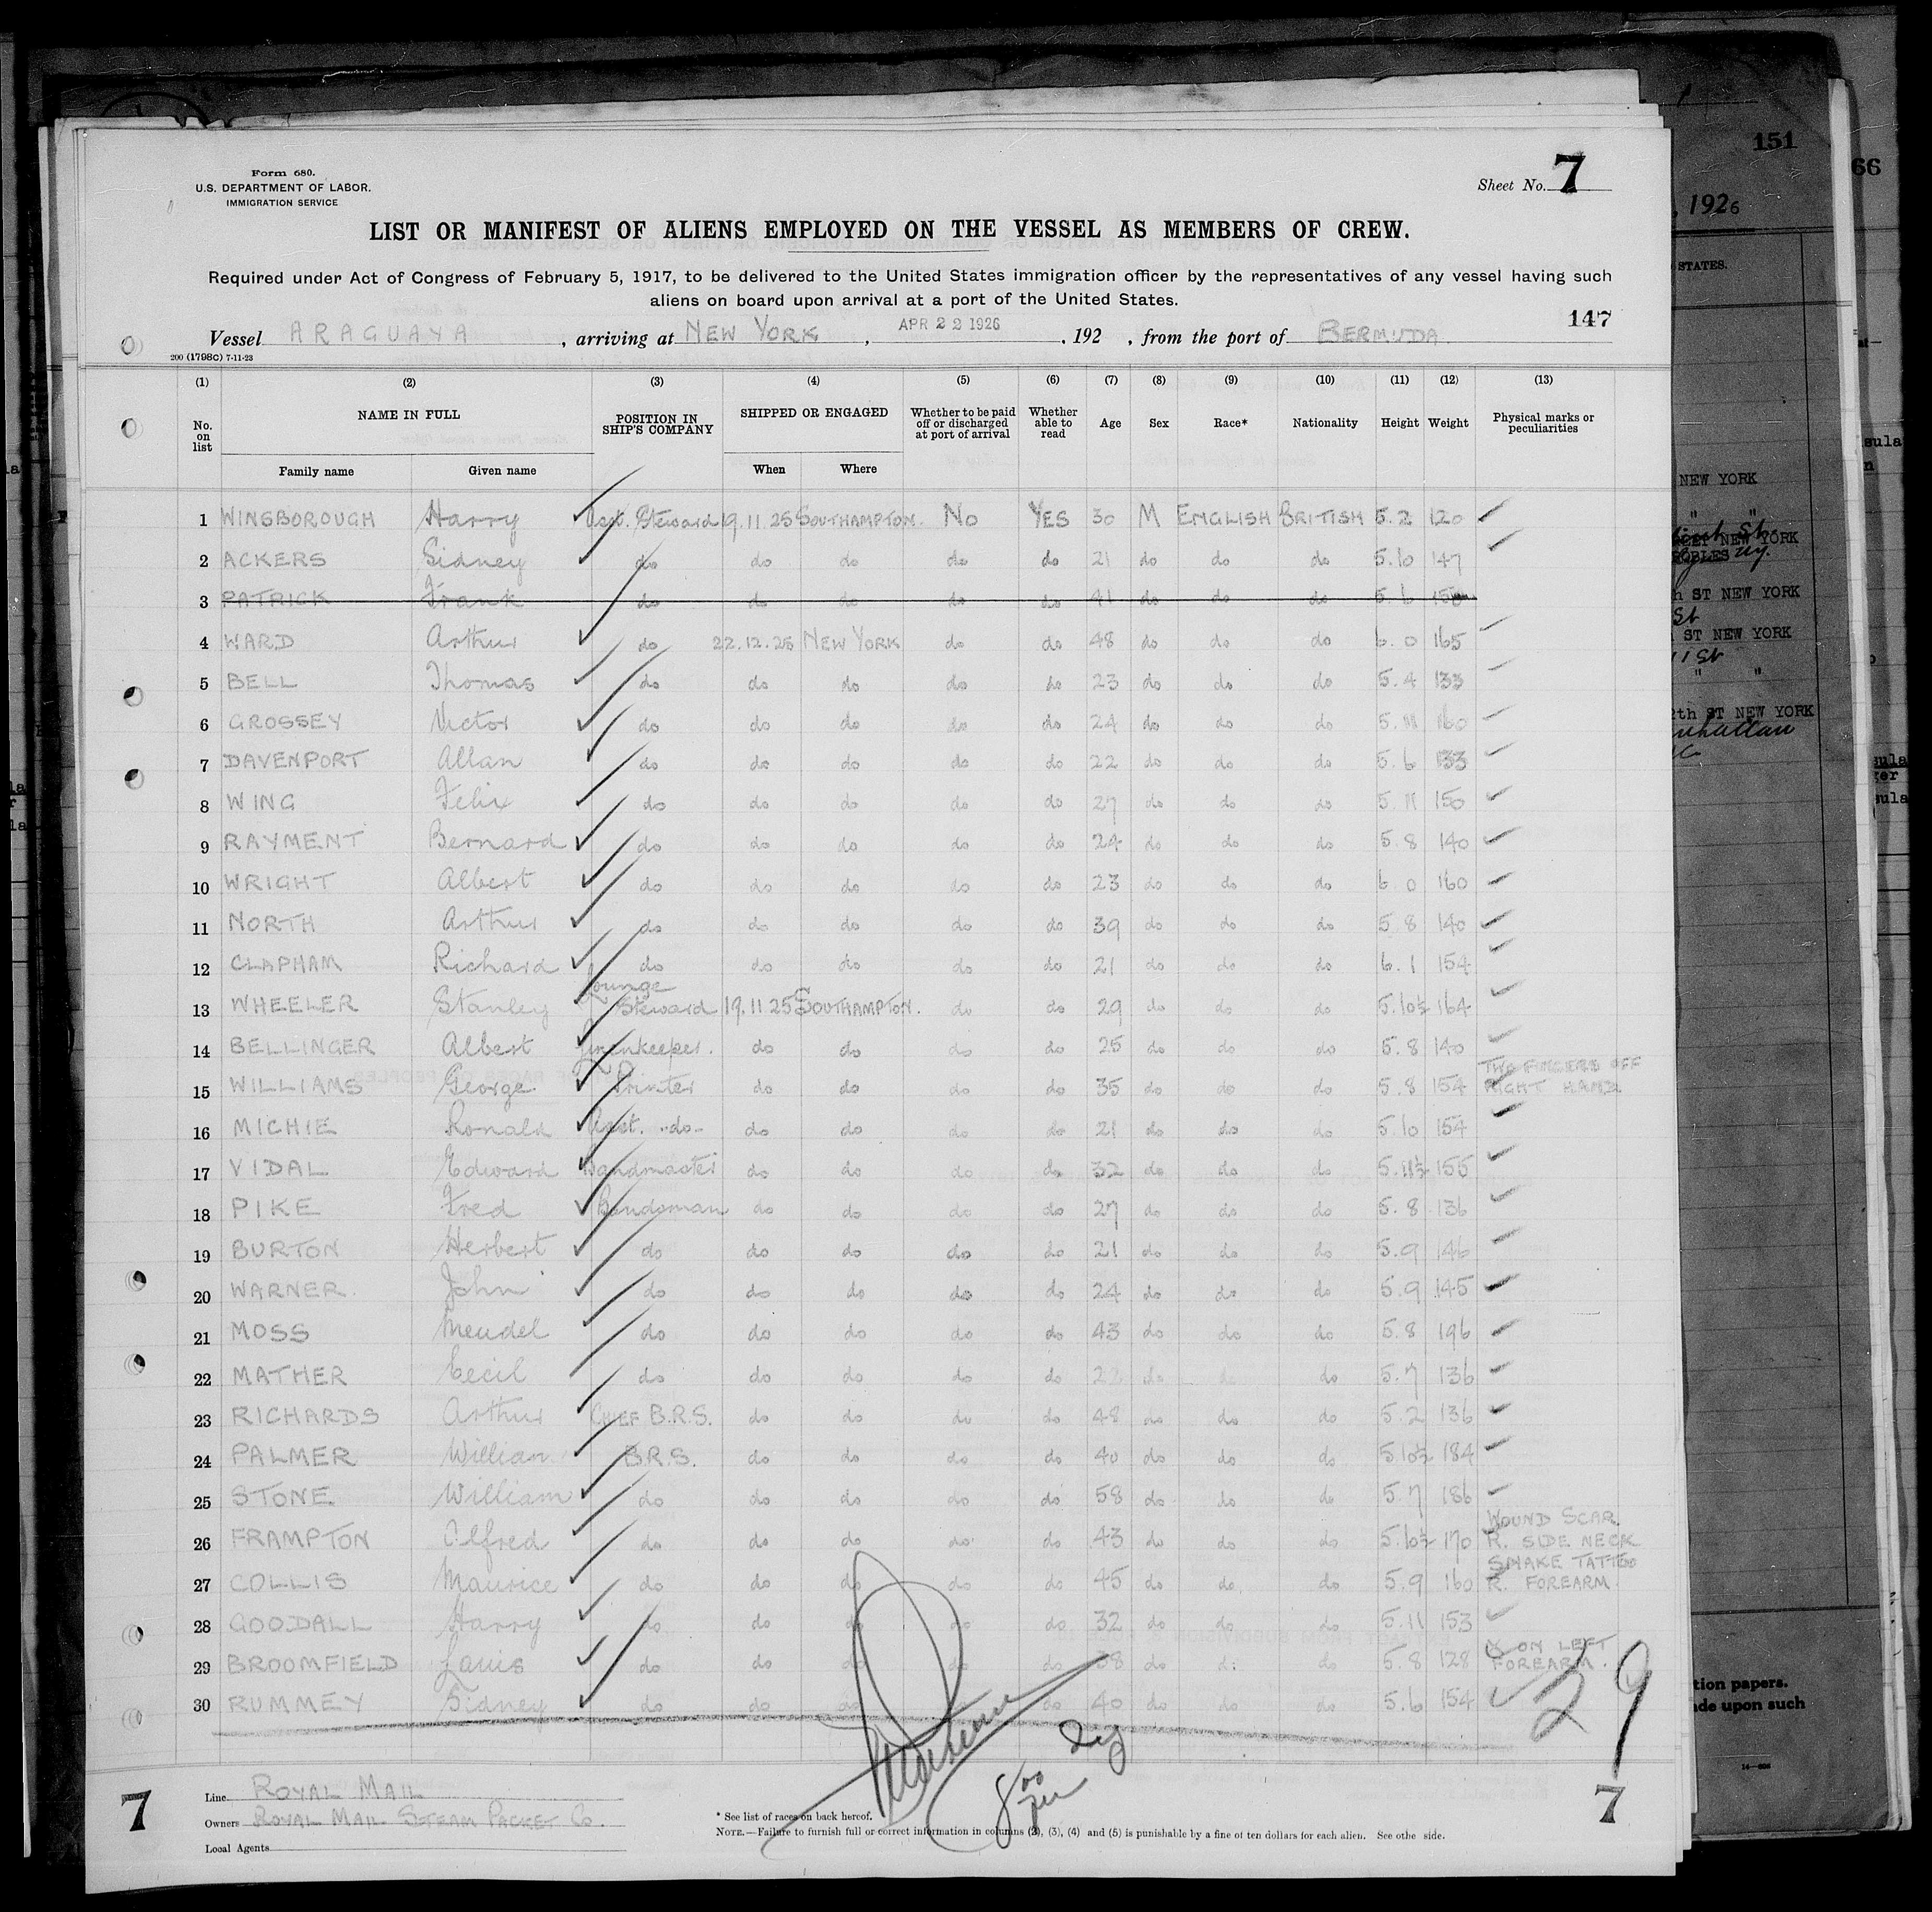 151
66
, 1926
STATES.
Form 680.
U.S. DEPARTMENT OF LABOR.
IMMIGRATION SERVICE
Sheet No. 7
LIST OR MANIFEST OF ALIENS EMPLOYED ON THE VESSEL AS MEMBERS OF CREW.
Required under Act of Congress of February 5, 1917, to be delivered to the United States immigration officer by the representatives of any vessel having such
aliens on board upon arrival at a port of the United States.
147
Vessel ARAGUAYA, arriving at NEW YORK, APR 22 1926, 192 , from the port of BERMUDA
200 (1798C) 7-11-23
(1) (2) (3) (4) (5) (6) (7) (8) (9) (10) (11) (12) (13)
No. on list NAME IN FULL POSITION IN SHIP'S COMPANY SHIPPED OR ENGAGED Whether to be paid off or discharged at port of arrival Whether able to read Age Sex Race* Nationality Height Weight Physical marks or peculiarities
Family name Given name When Where
1 WINSBOROUGH Harry Asst. Steward 19.11.25 SOUTHAMPTON. No YES 30 M ENGLISH BRITISH 5.2 120
2 ACKERS Sidney do do do do do 21 do do do 5.10 147
3 PATRICK Frank do do do do do 41 do do do 5.6
4 WARD Arthur do 22.12.25 NEW YORK do do 48 do do do 6.0 165
5 BELL Thomas do do do do do 23 do do do 5.4 133
6 GROSSEY Victor do do do do do 24 do do do 5.11 160
7 DAVENPORT Allan do do do do do 22 do do do 5.6 133
8 WING Felix do do do do do 27 do do do 5.11 150
9 RAYMENT Bernard do do do do do 24 do do do 5.8 140
10 WRIGHT Albert do do do do do 23 do do do 6.0 160
11 NORTH Arthur do do do do do 39 do do do 5.8 140
12 CLAPHAM Richard do do do do do 21 do do do 6.1 154
13 WHEELER Stanley Lounge Steward 19.11.25 SOUTHAMPTON. do do 29 do do do 5.10½ 164
14 BELLINGER Albert Linenkeeper. do do do do 25 do do do 5.8 140
15 WILLIAMS George Printer do do do do 35 do do do 5.8 154 TWO FINGERS OFF RIGHT HAND
16 MICHIE Ronald Asst. -do- do do do do 21 do do do 5.10 154
17 VIDAL Edward Bandmaster do do do do 32 do do do 5.11½ 155
18 PIKE Fred Bandsman do do do do 27 do do do 5.8 136
19 BURTON Herbert do do do do do 21 do do do 5.9 146
20 WARNER. John do do do do do 24 do do do 5.9 145
21 MOSS Mendel do do do do do 43 do do do 5.8 196
22 MATHER Cecil do do do do do 22 do do do 5.7 136
23 RICHARDS Arthur CHIEF B.R.S. do do do do 48 do do do 5.2 136
24 PALMER William B.R.S. do do do do 40 do do do 5.10½ 184
25 STONE William do do do do do 58 do do do 5.7 186
26 FRAMPTON Alfred do do do do do 43 do do do 5.10½ 170 WOUND SCAR R. SIDE NECK
27 COLLIS Maurice do do do do do 45 do do do 5.9 160 SNAKE TATTOO R. FOREARM.
28 GOODALL Harry do do do do do 32 do do do 5.11 153
29 BROOMFIELD Louis do do do do do 38 do do do 5.8 128 X ON LEFT FOREARM.
30 RUMMEY Sidney do do do do do 40 do do do 5.6 154
29
7
Line ROYAL MAIL
Owners ROYAL MAIL STEAM PACKET Co.
Local Agents
* See list of races on back hereof.
NOTE.—Failure to furnish full or correct information in columns (2), (3), (4) and (5) is punishable by a fine of ten dollars for each alien. See othe side.
7
NEW YORK
NEW YORK
ST NEW YORK
St
ST NEW YORK
ST NEW YORK
tion papers.
upon such